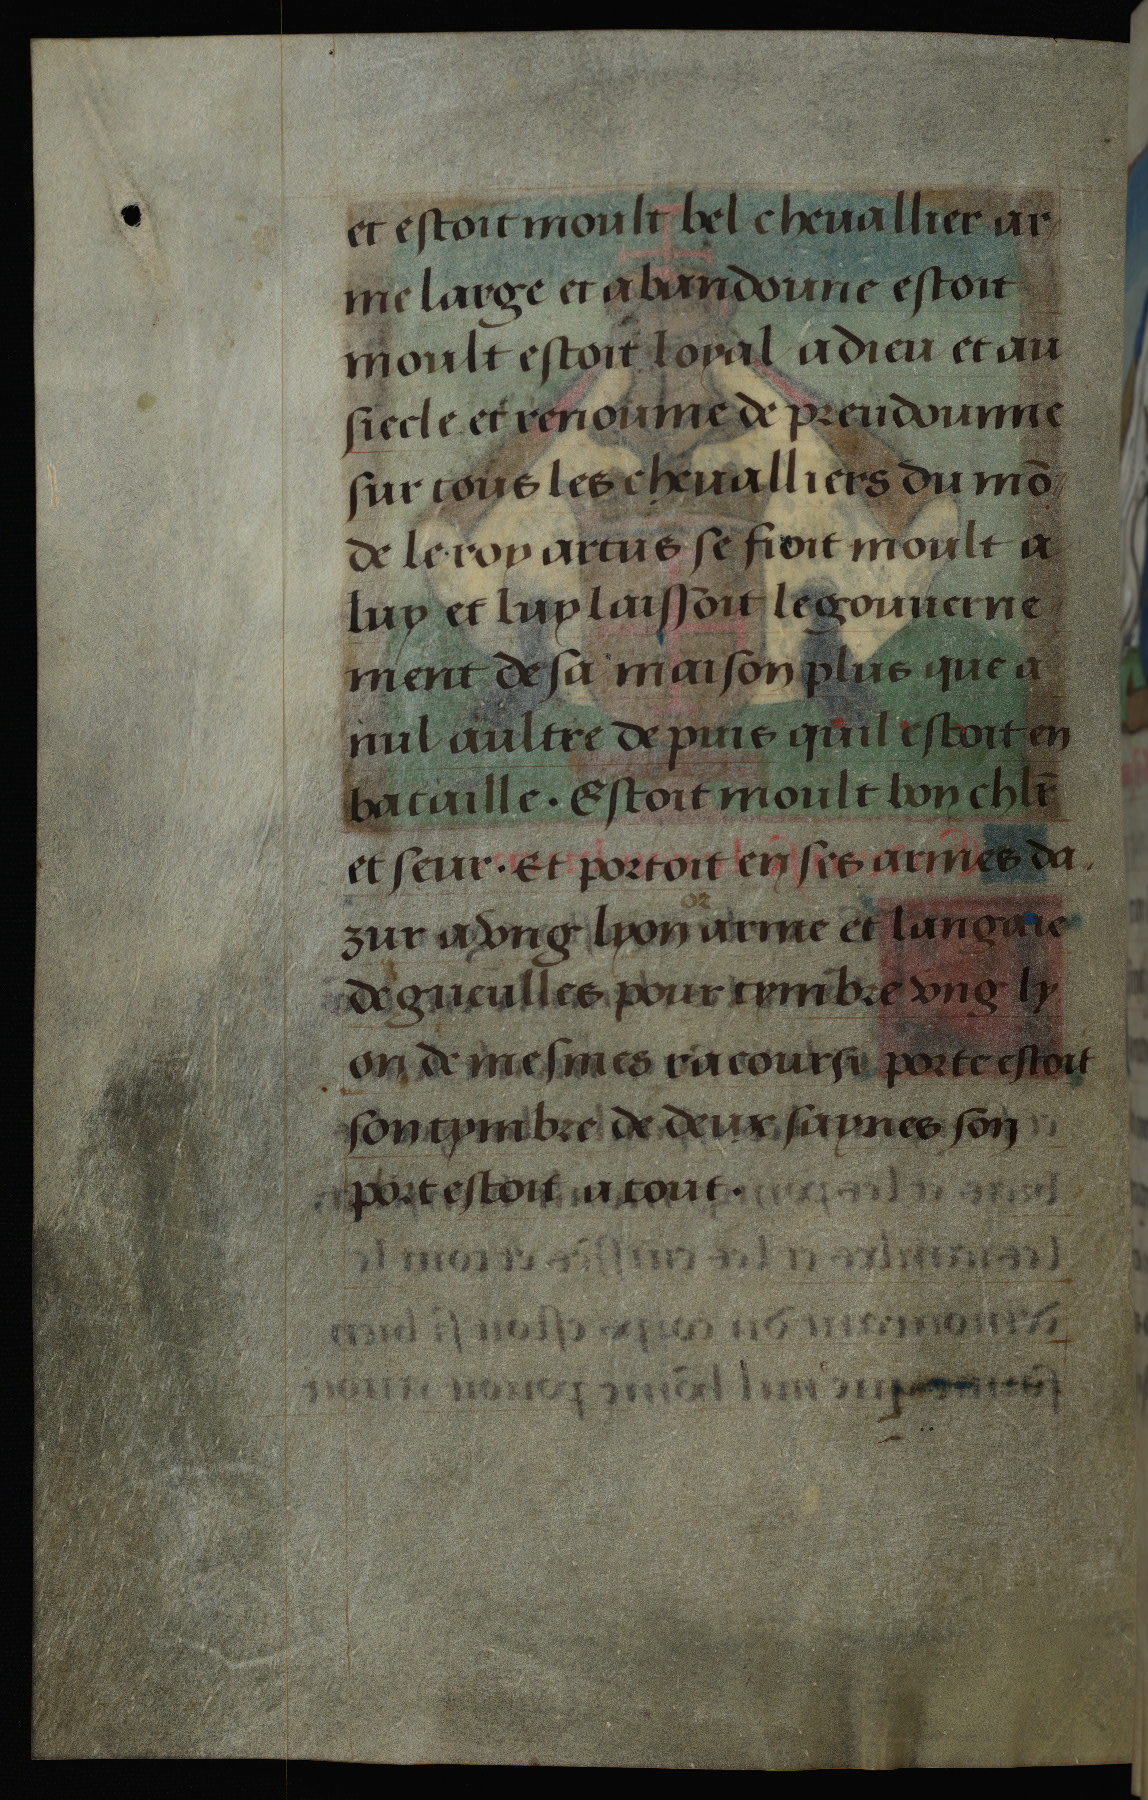 et estoit moult bel cheuallier ar
me large et abandoune estoit
moult estoit loyal a dieu et au
siecle et renoume de preudoumme
sur tous les cheualliers du mō
de le roy artus se fioit moult a
luy et luy laissoit le gouuerne
ment de sa maison plus que a
nul aultre de puis quil estoit en
bataille. Estoit moult bon chlr̄
et seur. Et portoit en ses armes da
or
zur a vng lyon arme et langaie
de gueulles pour tymbre vng ly
on de mesmes racoursi porte estoit
son tymbre de deux saynes son
port estoit a tout.